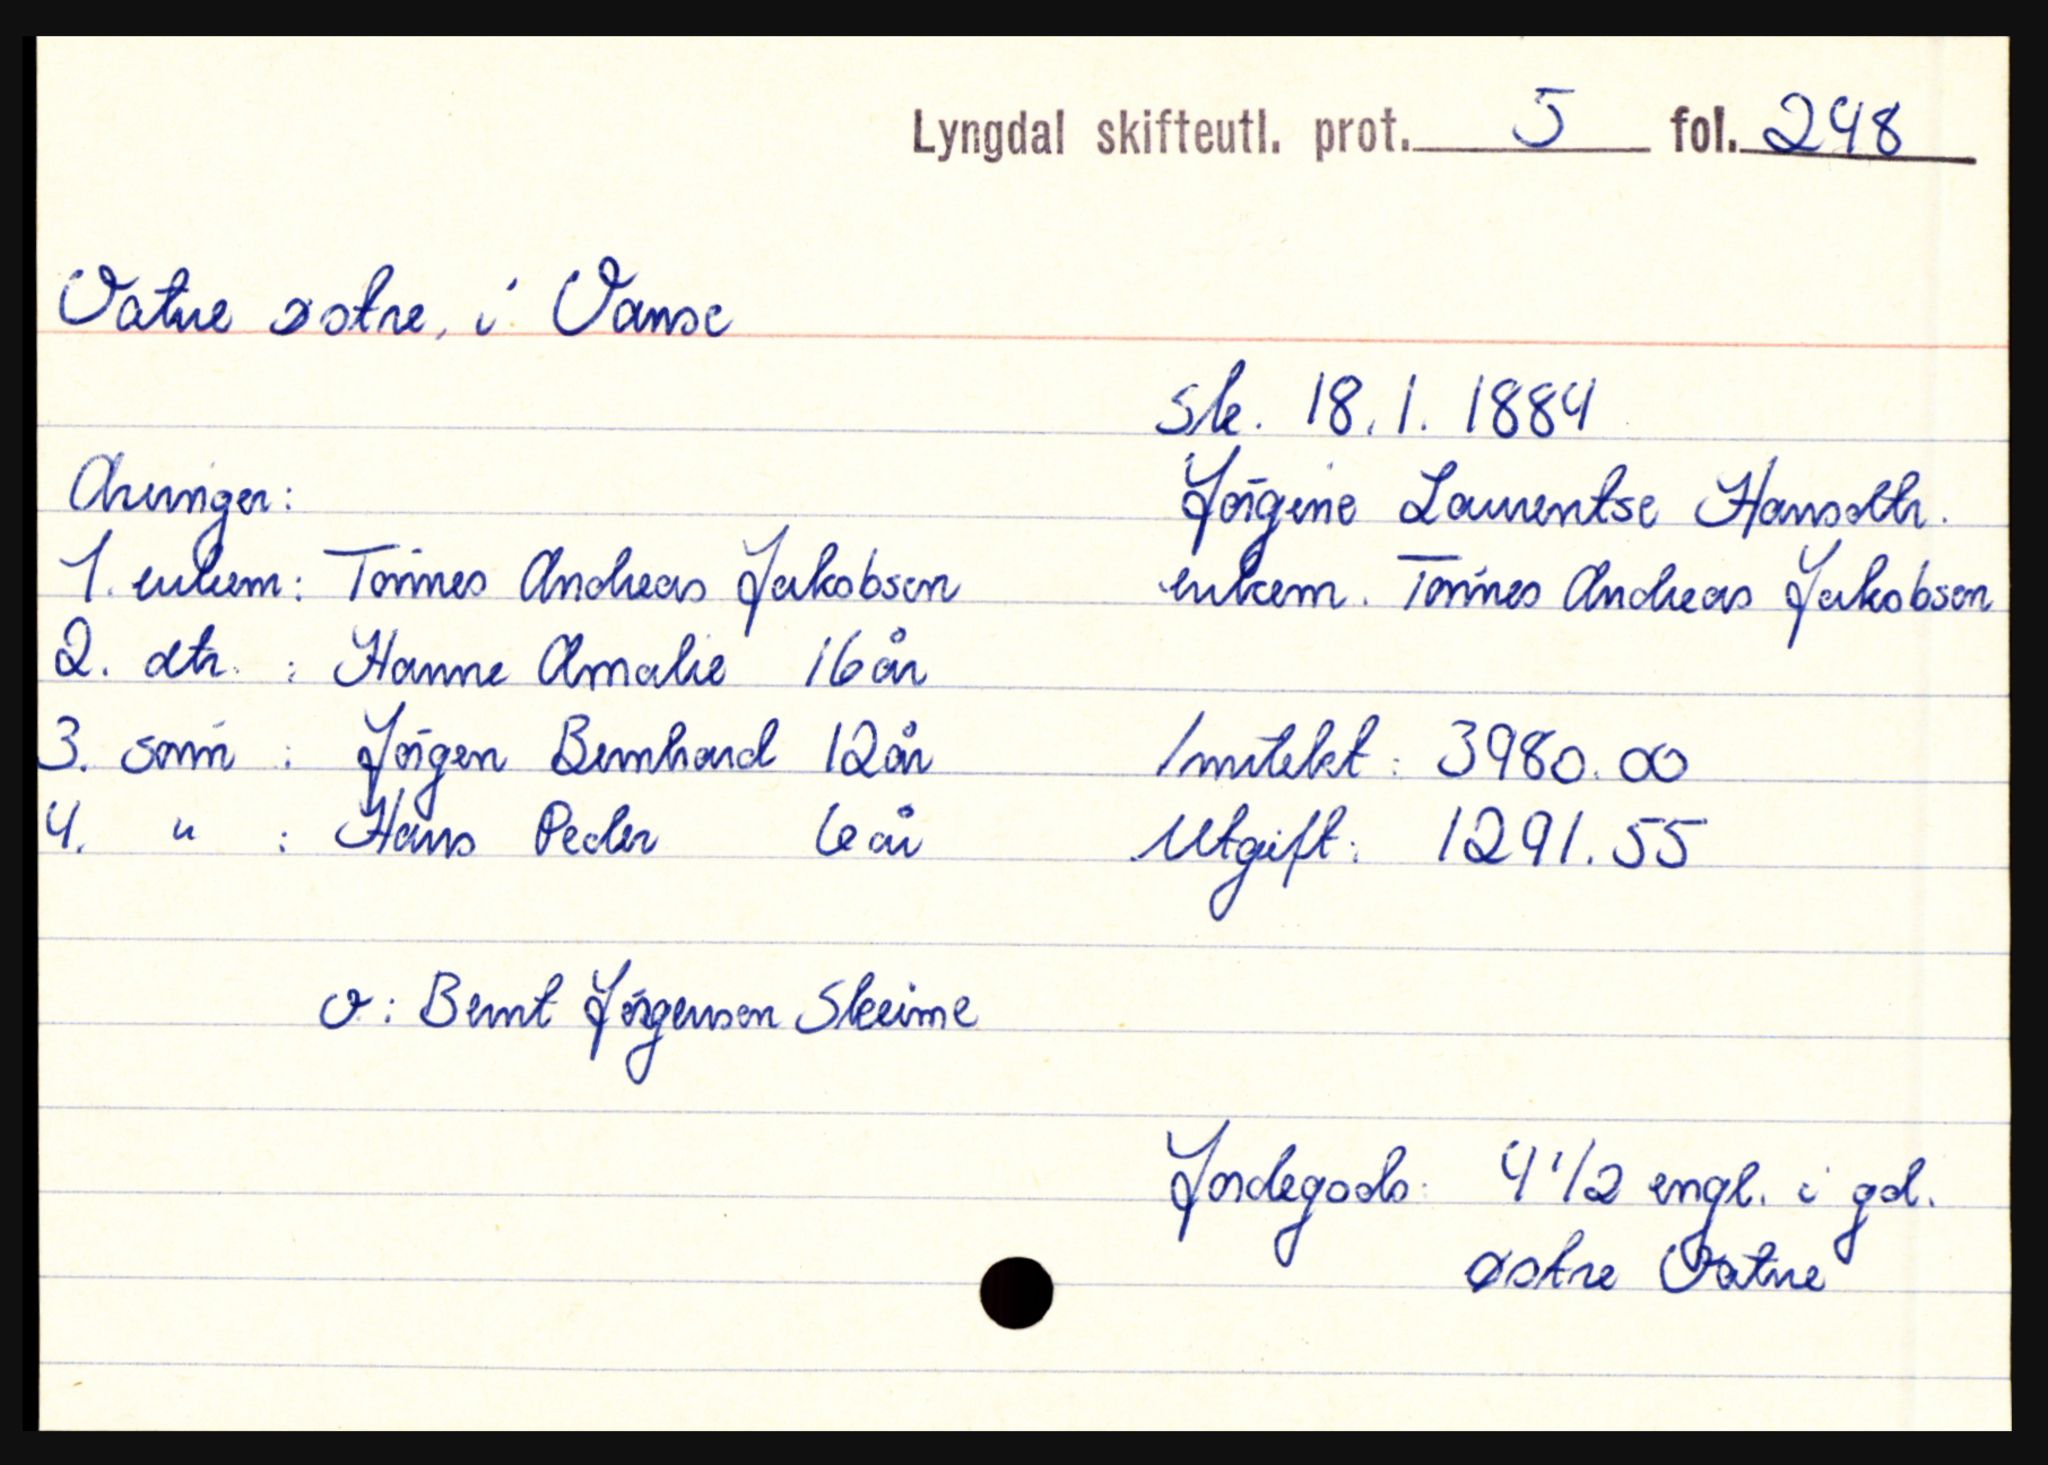 Lyngdal skifteutl. prot. 5 fol. 248
Vatne østre, i Vanse
Sk. 18.1.1884
Arvinger:
Jörgine Laurentse Hansdtr.
1. enkem: Tönnes Andreas Jakobsen
enkem. Tönnes Andreas Jakobsen
2. dtr. : Hanne Amalie 16 år
3. sönn : Jörgen Bernhard 12 år
Inntekt: 3980.00
4. " : Hans Peder 6 år
Utgift: 1291.55
v: Bernt Jörgensen Skeime
Jordegods: 4 1/2 engl. i gd.
østre Vatne